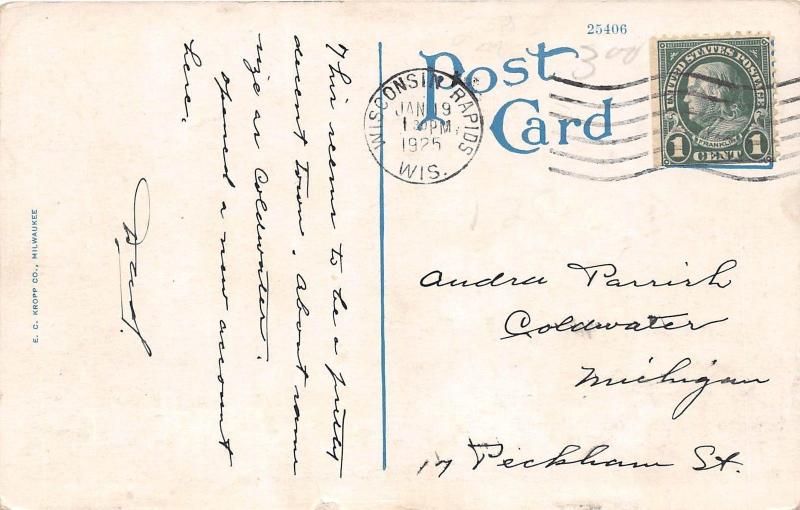 This seems to be a pretty
decent town. About same
size as Coldwater.
opened a new account
here.
Dad.
E. C. KROPP CO., MILWAUKEE
25406
Post
Card
300
WISCONSIN RAPIDS
JAN 19
1925
WIS.
UNITED STATES POSTAGE
FRANKLIN
1 CENT 1
Audra Parrish
Coldwater
Michigan
17 Peckham St.